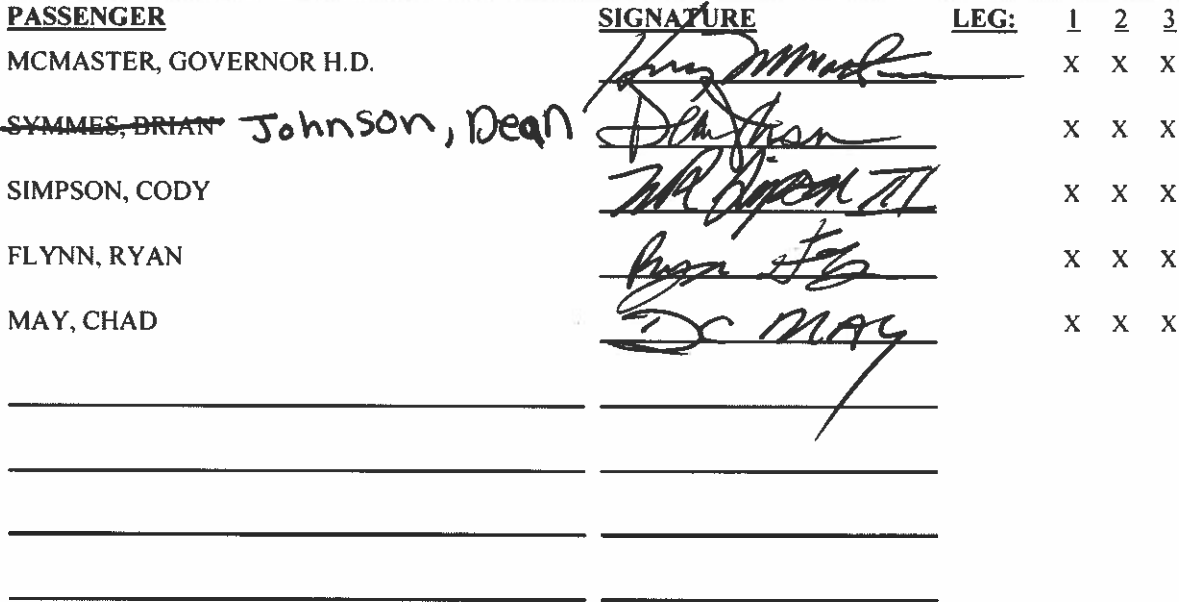 PASSENGER SIGNATURE LEG: 1 2 3
MCMASTER, GOVERNOR H.D. Henry McMaster X X X
SYMMES, BRIAN Johnson, Dean X X X
SIMPSON, CODY III X X X
FLYNN, RYAN Ryan X X X
MAY, CHAD DC MAY X X X